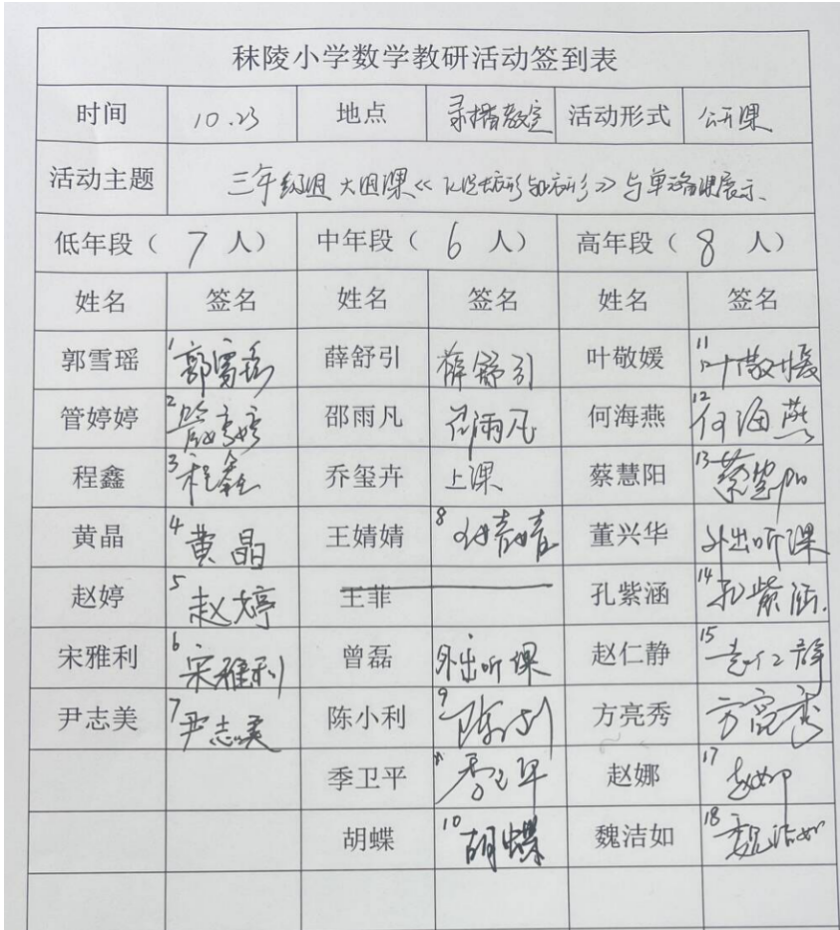 秣陵小学数学教研活动签到表
时间 10.23 地点 录播教室 活动形式 公开课
活动主题 三年级组 大组课《 长方形 》与单 课展示.
低年段（ 7 人） 中年段（ 6 人） 高年段（ 8 人）
姓名 签名 姓名 签名 姓名 签名
郭雪瑶 1 郭雪瑶 薛舒引 薛舒引 叶敬媛 11 叶敬媛
管婷婷 2 管婷婷 邵雨凡 邵雨凡 何海燕 12 何海燕
程鑫 3 程鑫 乔玺卉 上课 蔡慧阳 13 蔡慧阳
黄晶 4 黄晶 王婧婧 8 王婧婧 董兴华 外出听课
赵婷 5 赵婷 王菲 孔紫涵 14 孔紫涵.
宋雅利 6 宋雅利 曾磊 外出听课 赵仁静 15 赵仁静
尹志美 7 尹志美 陈小利 9 陈小利 方亮秀 方亮秀
季卫平 季卫平 赵娜 17 赵娜
胡蝶 10 胡蝶 魏洁如 18 魏洁如